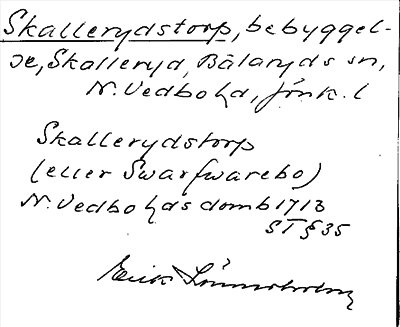 Skallerydstorp, bebyggel-
se, Skalleryd, Bälaryds sn,
N. Vedbo hd, Jönk. l
Skallerydstorp
(eller Swarfwarebo)
N. Vedbo hds domb 1713
ST § 35
Erik